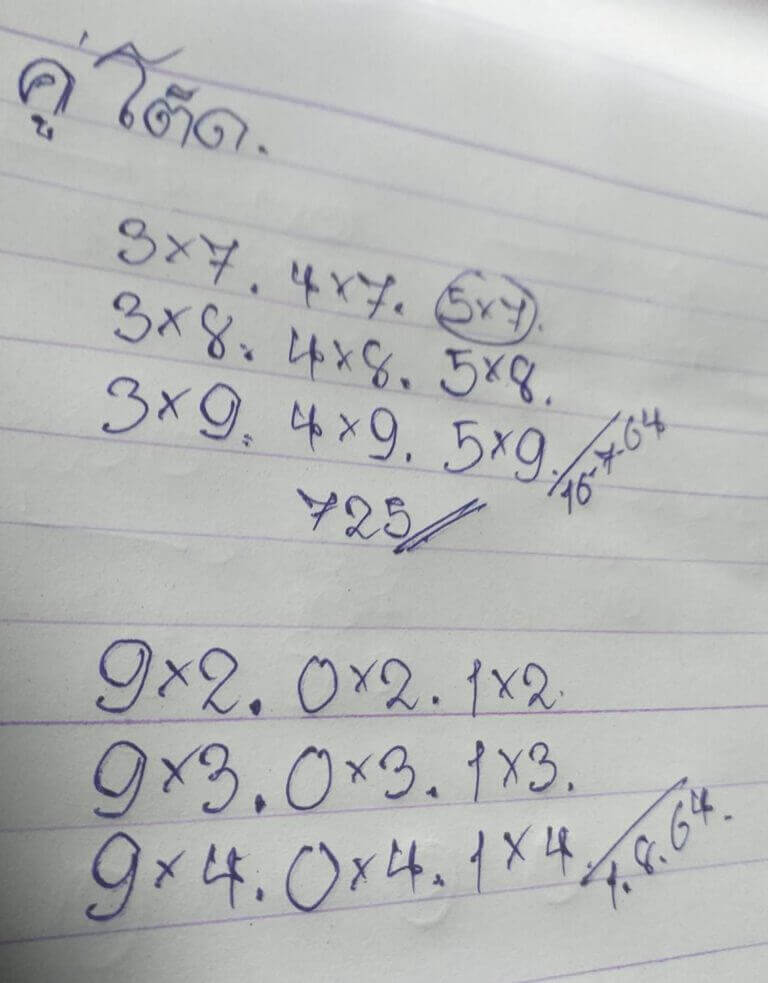 คู่โต๊ด.
3×7. 4×7. 5×7.
3×8. 4×8. 5×8.
3×9. 4×9. 5×9. 16-7-64
725
9×2. 0×2. 1×2.
9×3. 0×3. 1×3.
9×4. 0×4. 1×4. 1.8.64.